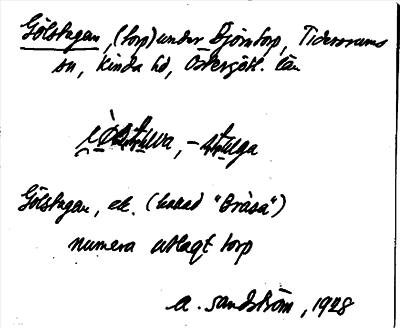 Gölstugan, (torp) under Björntorp, Tidersrums
sn, Kinda hd, Östergötl. län
-stulga
Gölstugan, ek. (kallad "Bråsa")
numera utlagt torp
A. Sandström, 1928